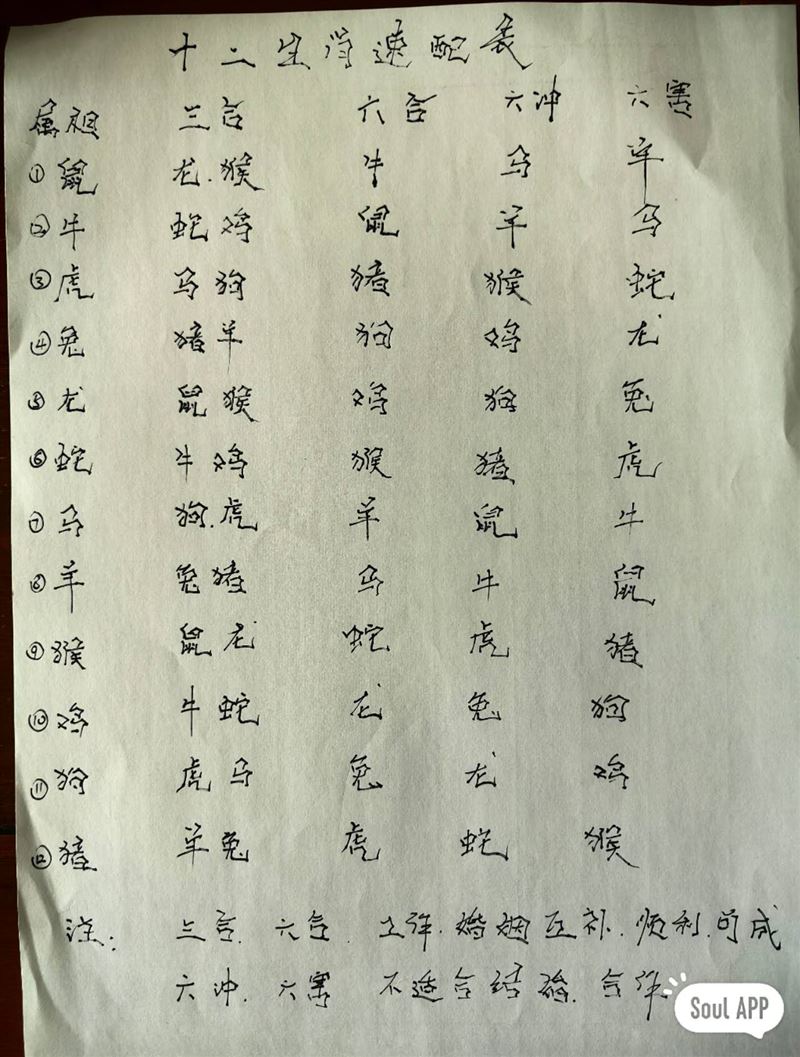 十二生肖速配表
属相 三合 六合 六冲 六害
①鼠 龙.猴 牛 马 羊
②牛 蛇鸡 鼠 羊 马
③虎 马狗 猪 猴 蛇
④兔 猪羊 狗 鸡 龙
⑤龙 鼠猴 鸡 狗 兔
⑥蛇 牛鸡 猴 猪 虎
⑦马 狗.虎 羊 鼠 牛
⑧羊 兔猪 马 牛 鼠
⑨猴 鼠龙 蛇 虎 猪
⑩鸡 牛蛇 龙 兔 狗
⑪狗 虎马 兔 龙 鸡
⑫猪 羊兔 虎 蛇 猴
注: 三合. 六合. 工作.婚姻互补.顺利.可成
六冲. 六害 不适合结婚.合作
Soul APP